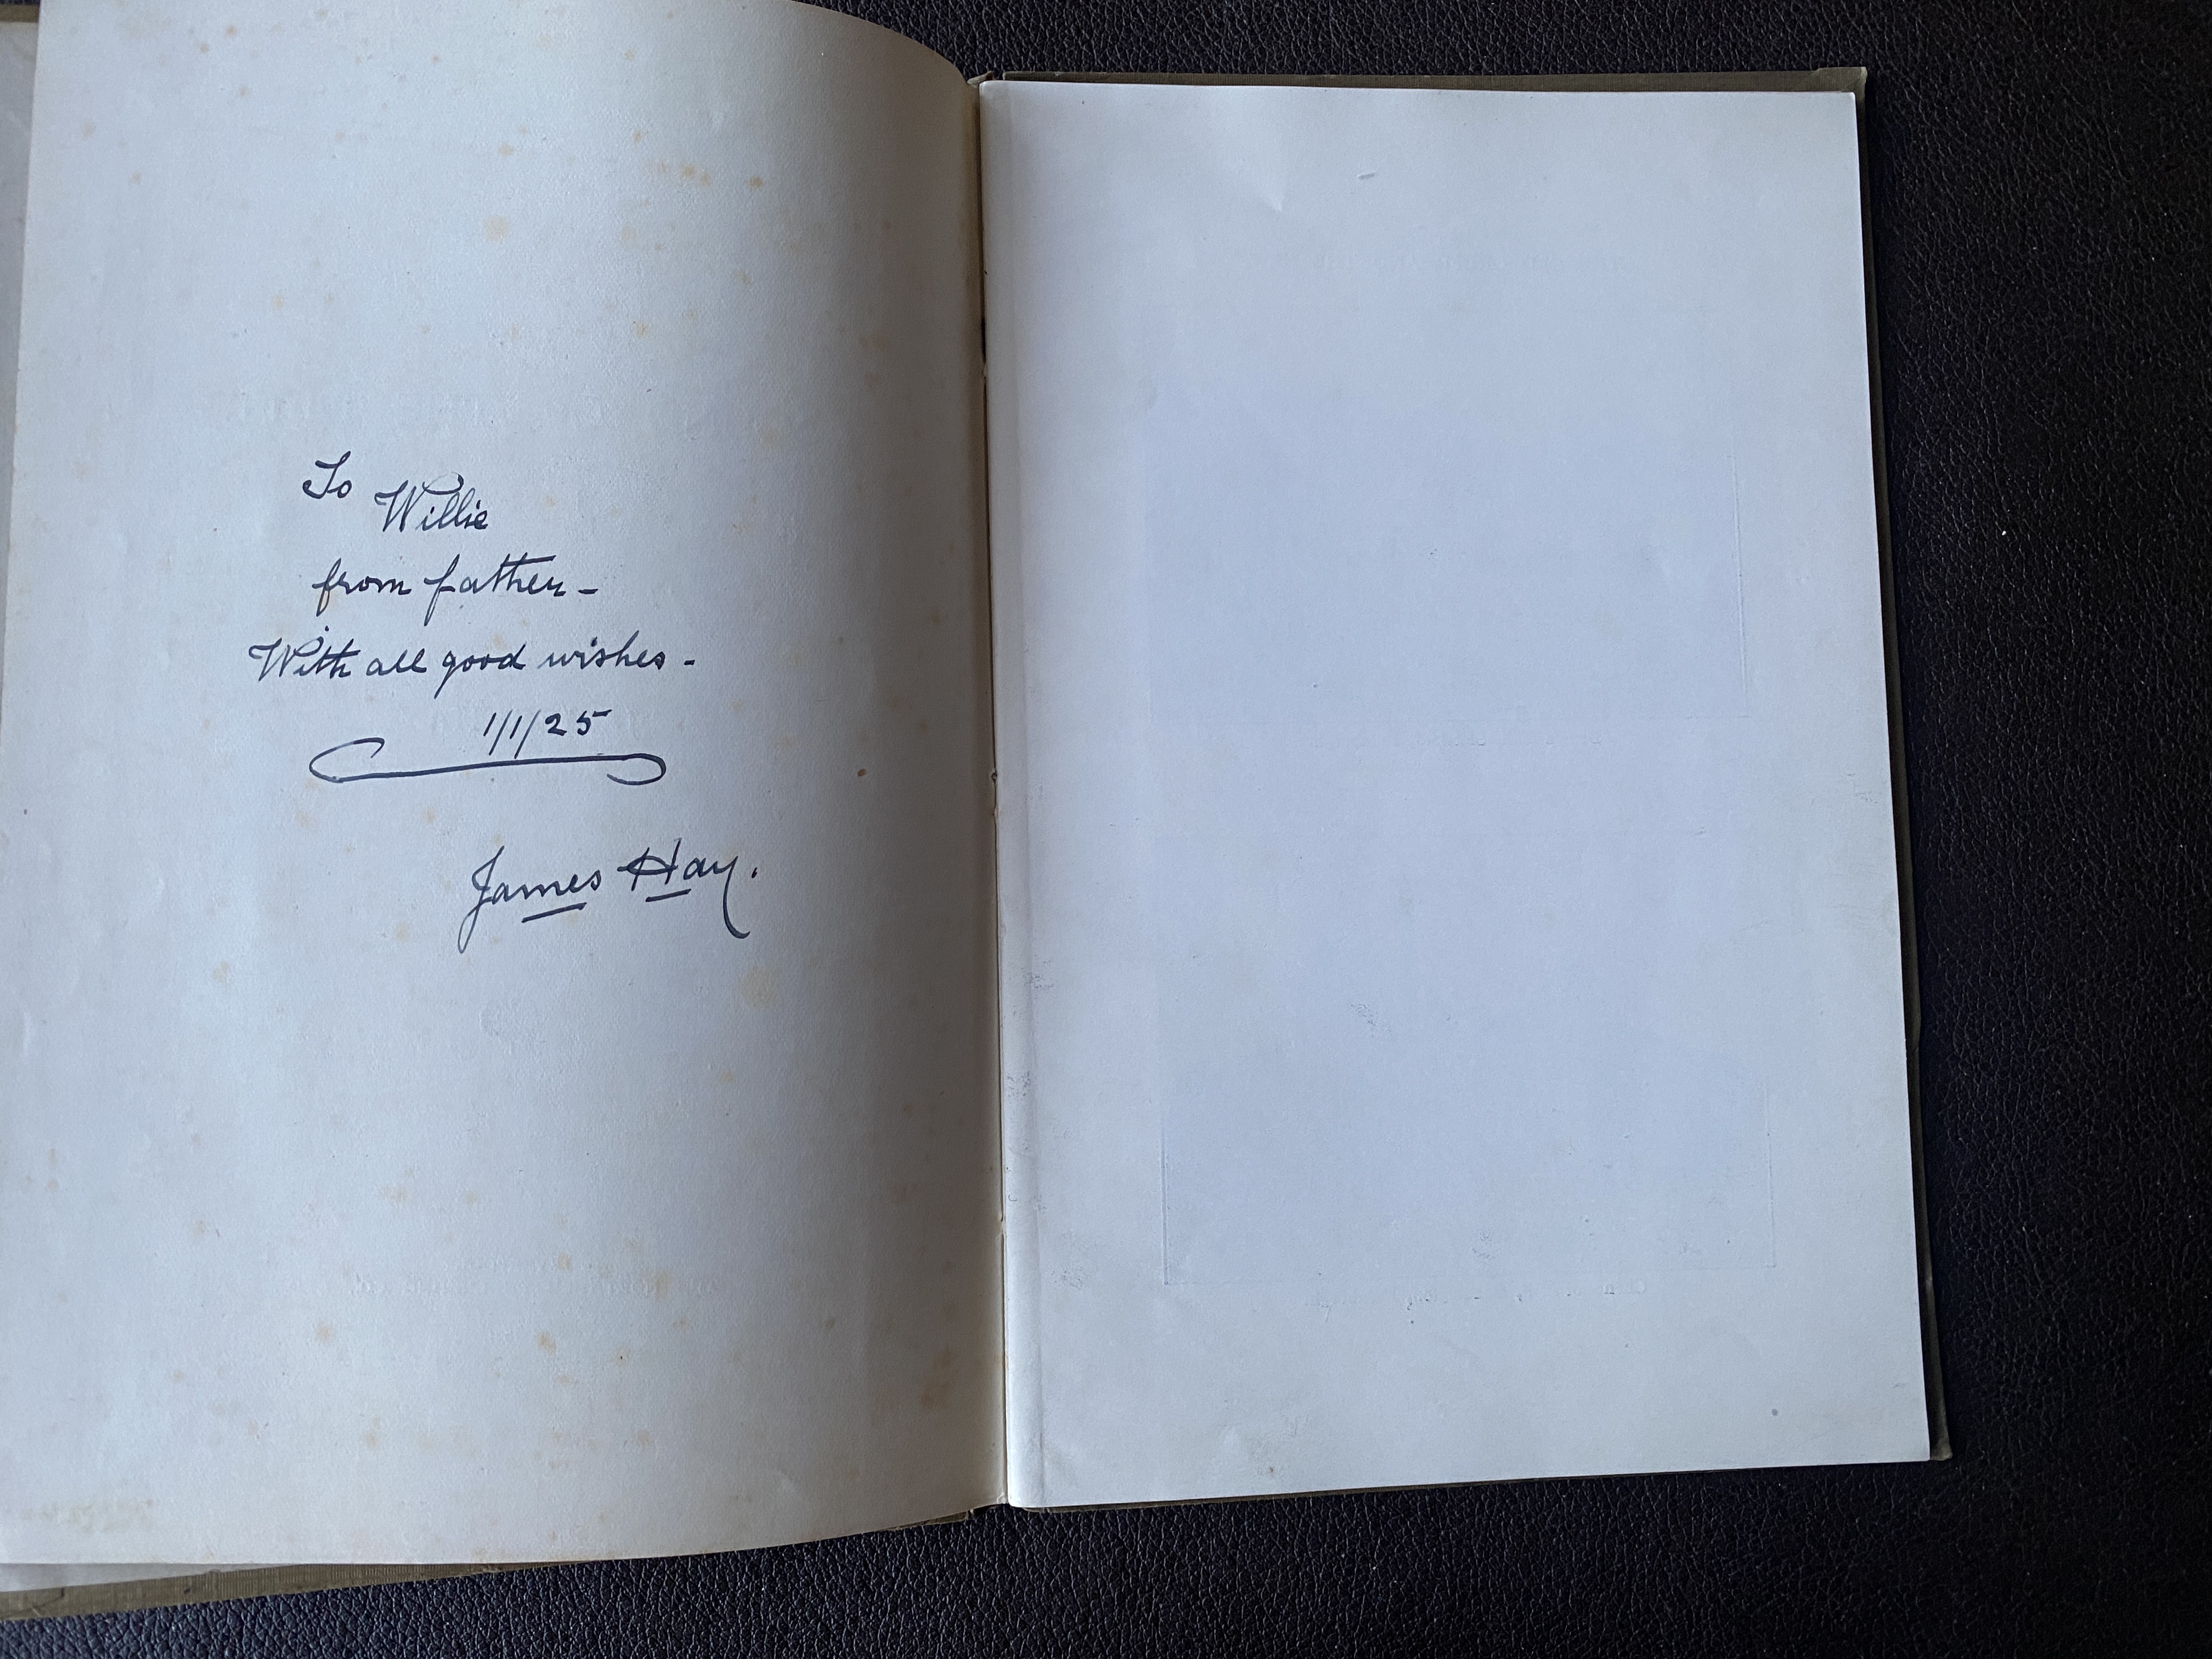 To Willie
from father -
With all good wishes -
1/1/25
James Hay.